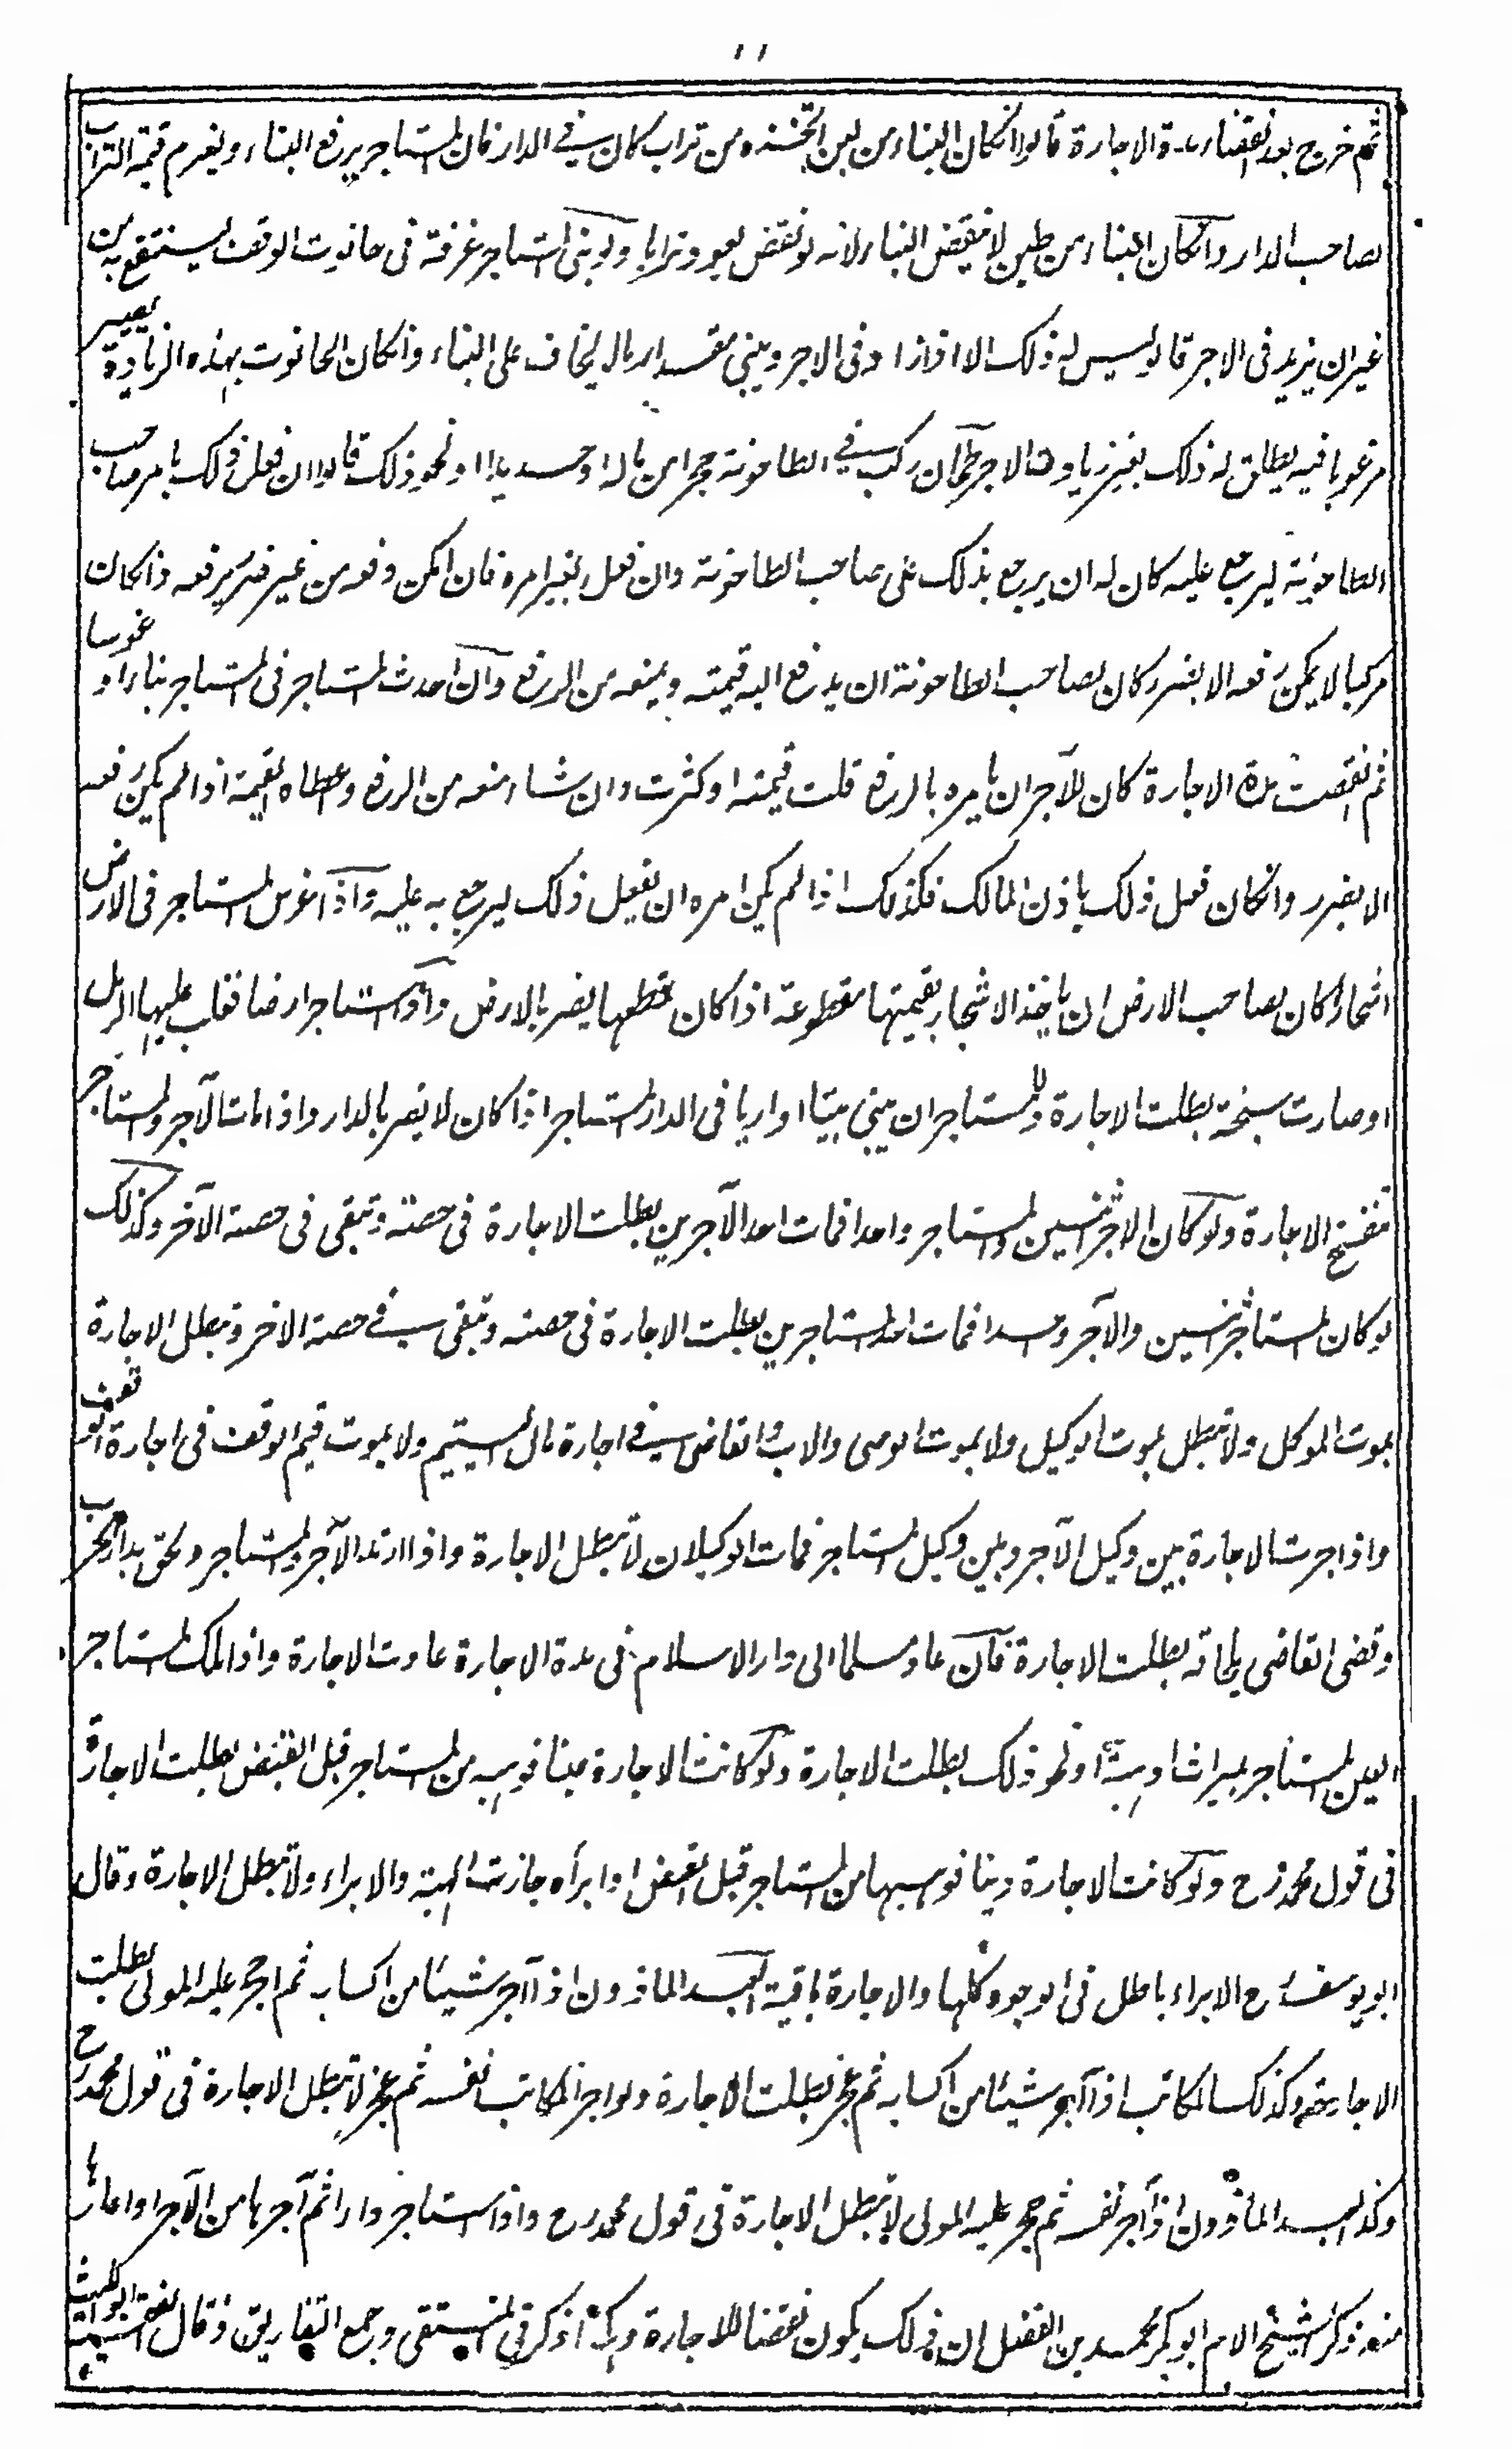 ١١
ثم خرج بعد انقضاء مدة الاجارة قالوا انكان البناء من لبن اتخذه من تراب كان في الدار فان المستاجر يرفع البناء ويغرم قيمة التراب
لصاحب الدار وانكان البناء من طين لا ينقض البناء لانه لو نقض يعود ترابا ولو بنى المستاجر غرفة فى حانوت الوقف لينتفع به من
غير ان يزيد فى الاجر قالوا ليس له ذلك الا اذا زاد فى الاجر ويبنى مقدار ما لا يخاف على البناء وانكان الحانوت بهذه الزيادة يصير
مرغوبا فيه يطلق له ذلك بغير زيادة الاجر طحان ركب في الطاحونة حجرا من ماله او حديدا او نحو ذلك قالوا ان فعل ذلك بامر صاحب
الطاحونة ليرجع عليه كان له ان يرجع بذلك على صاحب الطاحونة وان فعل بغير امره فان امكن رفعه من غير ضرر يرفعه وانكان
مركبا لا يمكن رفعه الا بضرر كان لصاحب الطاحونة ان يدفع اليه قيمته ويمنعه من الرفع وان احدث المستاجر فى المستاجر بناء او غروسا
ثم انقضت مدة الاجارة كان للآجر ان يامره بالرفع قلت قيمته او كثرت وان شاء منعه من الرفع واعطاه القيمة اذا لم يكن رفعه
الا بضرر وانكان فعل ذلك باذن المالك فكذلك اذا لم يكن امره ان يفعل ذلك ليرجع به عليه واذا غرس المستاجر فى الارض
اشجارا كان لصاحب الارض ان ياخذ الاشجار بقيمتها مقطوعة اذا كان قطعها يضر بالارض ولو استاجر ارضا فغلب عليها الرمل
او صارت سبخة بطلت الاجارة وللمستاجر ان يبنى بيتا او اريا فى الدار المستاجرة اذا كان لا يضر بالدار واذا مات الآجر والمستاجر
تنفسخ الاجارة ولو كان الآجر اثنين والمستاجر واحدا فمات احد الآجرين بطلت الاجارة فى حصته وتبقى فى حصة الآخر وكذلك
لو كان المستاجر اثنين والآجر واحدا فمات احد المستاجرين بطلت الاجارة فى حصته وتبقى في حصة الاخر وتبطل الاجارة
بموت الموكل ولا تبطل بموت الوكيل ولا بموت الوصى والاب والقاضى في اجارة مال اليتيم ولا بموت قيم الوقف فى اجارة الوقف
واذا جرت الاجارة بين وكيل الآجر وبين وكيل المستاجر فمات الوكيلان لا تبطل الاجارة واذا ارتد الآجر والمستاجر ولحق بدار الحرب
وقضى القاضى بلحاقه بطلت الاجارة فان عاد مسلما الى دار الاسلام فى مدة الاجارة عادت الاجارة واذا ملك المستاجر
العين المستاجر بميراث او هبة او نحو ذلك بطلت الاجارة ولو كانت الاجارة عينا فوهبه من المستاجر قبل القبض بطلت الاجارة
فى قول محمد رح ولو كانت الاجارة دينا فوهبها من المستاجر قبل القبض او ابرأه جازت الهبة والابراء ولا تبطل الاجارة وقال
ابو يوسف رح الابراء باطل فى الوجوه كلها والاجارة باقية العبد الماذون اذا آجر شيئا من اكسابه ثم حجر عليه المولى بطلت
الاجارة وكذلك المكاتب اذا آجر شيئا من اكسابه ثم عجز بطلت الاجارة ولو اجر المكاتب نفسه ثم عجز لا تبطل الاجارة فى قول محمد رح
وكذا العبد الماذون اذا آجر نفسه ثم حجر عليه المولى لا تبطل الاجارة فى قول محمد رح واذا استاجر دارا ثم آجرها من الآجر او اعارها
منه ذكر الشيخ الامام ابو بكر محمد بن الفضل ان ذلك يكون نقضا للاجارة وهكذا ذكر فى المنتقى وجمع التفاريق وقال الفقيه ابو الليث